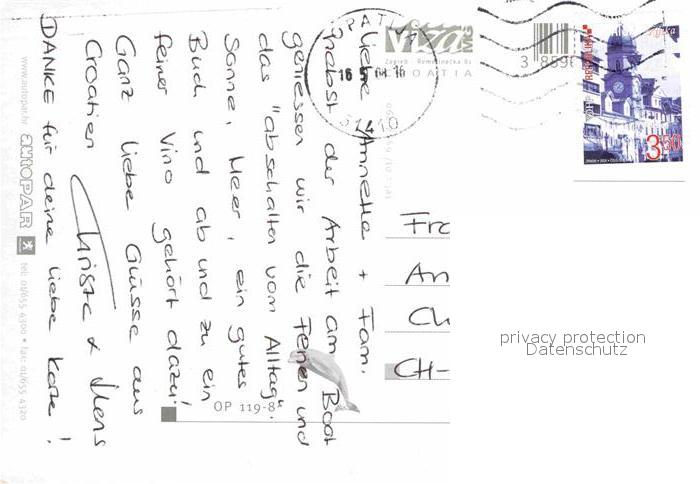 Liebe Annette + Fam.
nebst der Arbeit am Boot
geniessen wir die Ferien und
das "abschalten vom Alltag".
Sonne, Meer, ein gutes
Buch und ab und zu ein
feiner Vino gehört dazu!
Ganz liebe Grüsse aus
Croatien Christa &
DANKE für deine liebe Karte!
www.autopar.hr autoPAR tel: 01/655 4300 • fax: 01/655 4320
OP 119-8
VIVA MG
Zagreb - Remetinečka 81
CROATIA
OPATIJA
51410
3 8596
3.50
Fra
An
Ch
CH-
privacy protection
Datenschutz